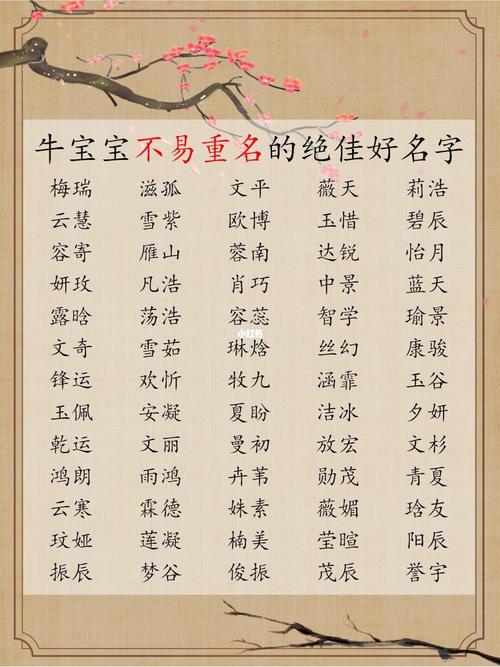 牛宝宝不易重名的绝佳好名字
梅瑞 滋孤 文平 薇天 莉浩
云慧 雪紫 欧博 玉惜 碧辰
容寄 雁山 蓉南 达锐 怡月
妍玫 凡浩 肖巧 中景 蓝天
露晗 荡浩 容蕊 智学 瑜景
文奇 雪茹 琳焓 丝幻 康骏
锋运 欢忻 牧九 涵霏 玉谷
玉佩 安凝 夏盼 洁冰 夕妍
乾运 文丽 曼初 放宏 文杉
鸿朗 雨鸿 卉苇 勋茂 青夏
云寒 霖德 姝素 薇媚 琀友
玟娅 莲凝 楠美 莹暄 阳辰
振辰 梦谷 俊振 茂辰 誉宇
小红书